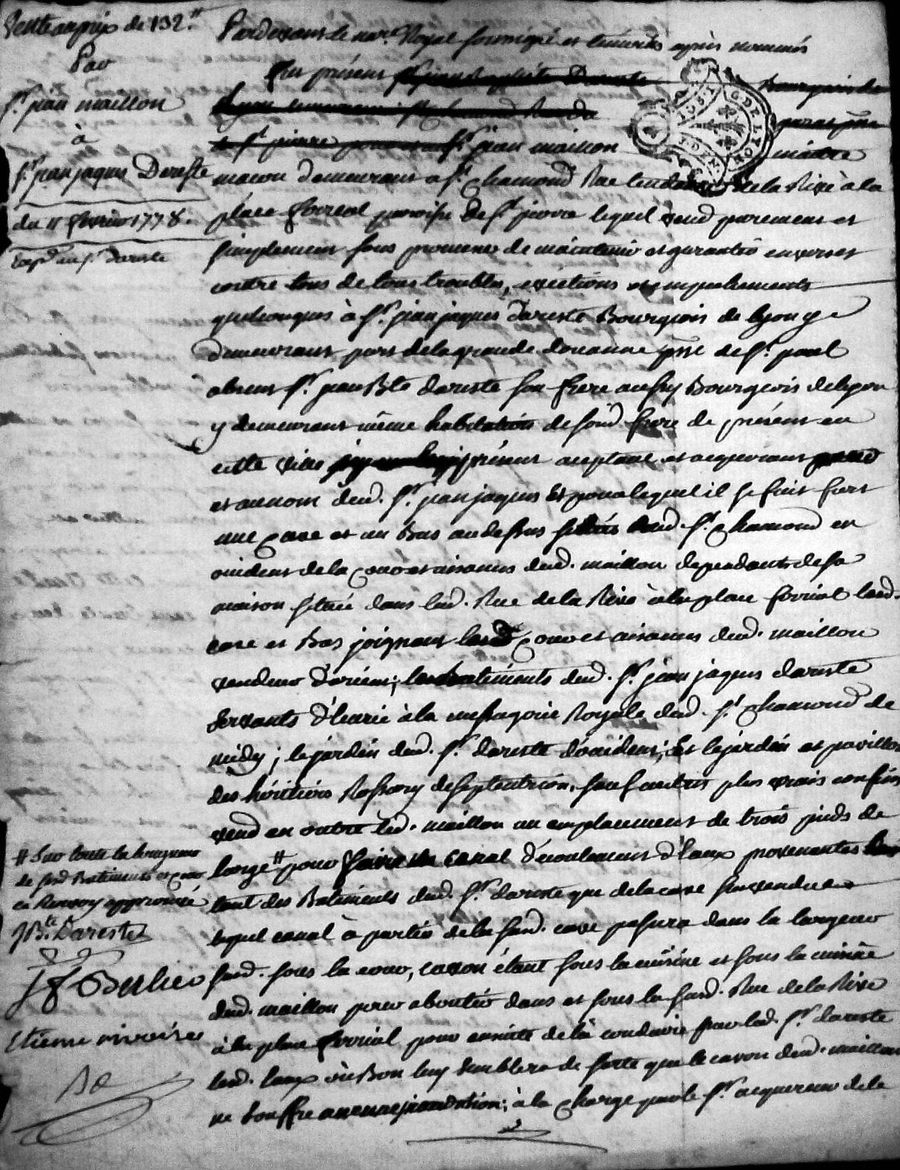 Vente au prix de 132.tt
Par
Sr. jean maillon
à
Sr. jean jaques Dareste
du 11 fevrier 1778.
Exp.d au Sr. dareste
Pardevant le nore. Royal soussigné et témoins après nommés
fut présent
Sr. jean maillon maitre
macon demeurant a St. chamond Rue tendante de la Rive à la
place ferreal paroisse de St. pierre lequel vend purement et
simplement sous promesse de maintenir et garantir envers et
contre tous de tous troubles, evictions et empechements
quelconques à Sr. jean jaques dareste Bourgeois de lyon y
demeurant port de la grande douanne psse de St. paul
absent Sr. jean Bte dareste son frere aussy Bourgeois de lyon
y demeurant même habitation de sond. frere de présent en
cette ville présent acceptant et acquerant
et au nom dud. Sr. jean jaques et pour lequel il se fait fort
une cave et un Bas au dessus aud. St. chamond en
occident de la cour et aisances dud. maillon dependants de sa
maison située dans lad. Rue de la Rive à la place ferréal lesd.
cave et Bas joignant cour et aisances dud. maillon
vendeur d'orient; les Batiments dud. Sr. jean jaques dareste
servants d'écurie à la messagerie Royale dud. St. chamond de
midy; le jardin dud. Sr. dareste d'occident; et le jardin et pavillon
des héritiers de septentrion, sauf autres plus vrais confins
vend en outre led. maillon un emplacement de trois pieds de
large # pour faire un canal d'écoulement d'eaux provenantes
tant des Batiments dud. Sr. dareste que de la cave sus vendue
lequel canal à partir de la susd. cave passera dans la largeur
susd. sous la cour, cavon étant sous la cuisine et sous la cuisine
dud. maillon pour aboutir dans et sous la susd. Rue de la Rive
à la place ferréal pour ensuite de là conduire par led. Sr. dareste
lesd. eaux où Bon luy semblera de sorte que le cavon dud. maillon
ne souffre aucune inondation; à la charge par le Sr. acquereur de le
# Sur toute la longueur
de susd. Batiments et cour
ce Renvoy approuvé
JBte. Dareste
Etienne